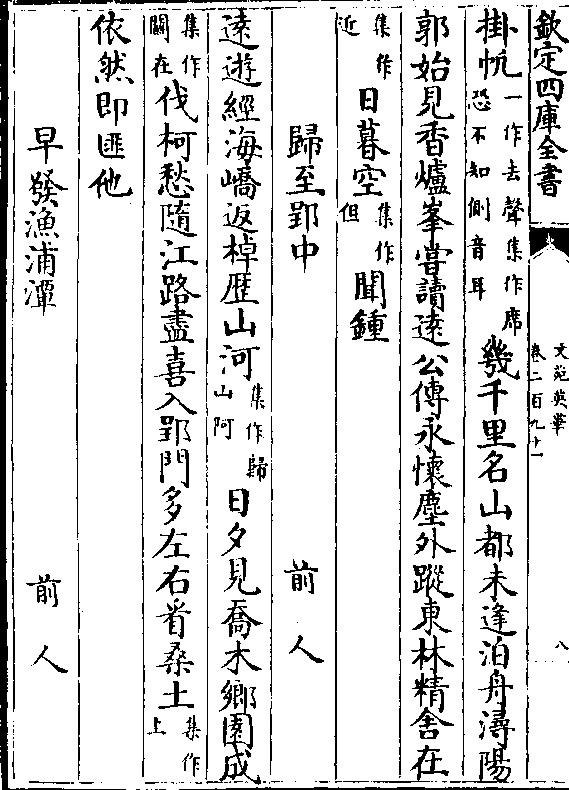 欽定四庫全書
文苑英華
卷二百九十一
八
掛帆一作去聲集作席恐不知側音耳幾千里名山都未逢泊舟潯陽
郭始見香爐峯嘗讀逺公傳永懷塵外蹤東林精舍在
集作近日暮空集作但聞鍾
歸至郢中 前人
逺遊經海嶠返棹歴山河集作歸山阿日夕見喬木鄉園成
集作關在伐柯愁隨江路盡喜入郢門多左右看桑土集作上
依然即匪他
早發漁浦潭 前人